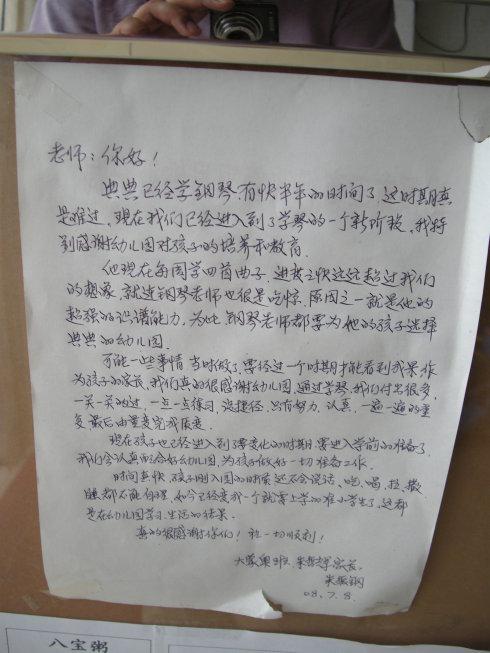 老师：你好！
典典已经学钢琴有快半年的时间了，这时期真
是难过，现在我们已经进入到了学琴的一个新阶段，我特
别感谢幼儿园对孩子的培养和教育。
他现在每周学四首曲子，进步之快远远超过我们
的想象，就连钢琴老师也很是吃惊，原因之一就是他的
超强的识谱能力，为此钢琴老师都要为他的孩子选择
典典的幼儿园。
可能一些事情当时做了，要经过一个时期才能看到成果，作
为孩子的家长，我们真的很感谢幼儿园，通过学琴，我们付出很多，
一关一关的过，一点一点练习，没捷径，只有努力、认真，一遍一遍的重
复，最后由量变完成质变。
现在孩子也已经进入到了要变化的时期，要进入学前的准备了，
我们会认真配合好幼儿园，为孩子做好一切准备工作。
时间真快，孩子刚入园的时候还不会说话，吃、喝、拉、撒、
睡都不能自理，如今已经变成一个就要上学的准小学生了，这都
是在幼儿园学习、生活的结果。
真的很感谢你们！祝一切顺利！
大班奥班 朱 家长，
朱振钢
08.7.8.
八宝粥